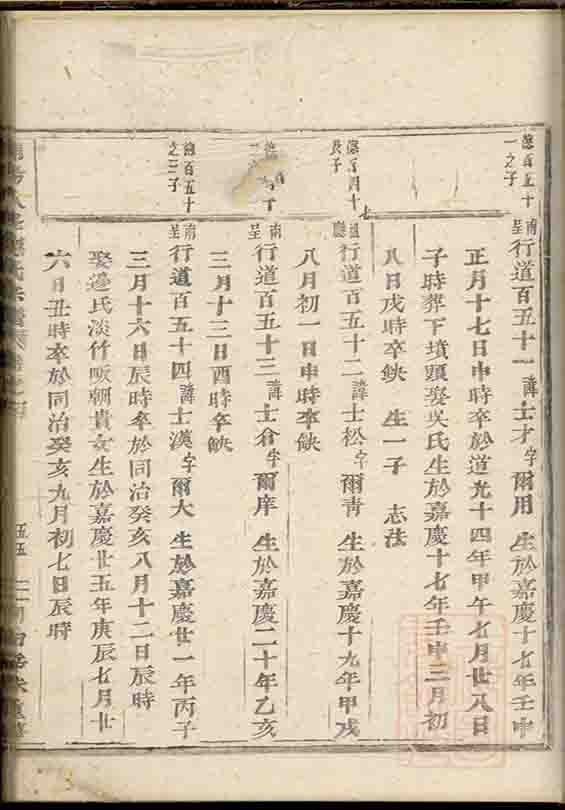 德百五十
一之子
南
呈
行道百五十一諱士才字爾用 生於嘉慶十七年壬申
正月十七日申時卒於道光十四年甲午七月廿八日
子時葬下墳頭娶吳氏生於嘉慶十七年壬申二月初
八日戌時卒缺 生一子 志法
長子
行道百五十二諱士松字爾青 生於嘉慶十九年甲戌
八月初一日申時卒缺
南
呈
行道百五十三諱士倉字爾庠 生於嘉慶二十年乙亥
三月十三日酉時卒缺
德百五十
之三子
南
呈
行道百五十四諱士漢字爾大 生於嘉慶廿一年丙子
三月十六日辰時卒於同治癸亥八月十二日辰時
娶邊氏淡竹畈朝貴女生於嘉慶廿五年庚辰七月廿
六日丑時卒於同治癸亥九月初七日辰時
五五